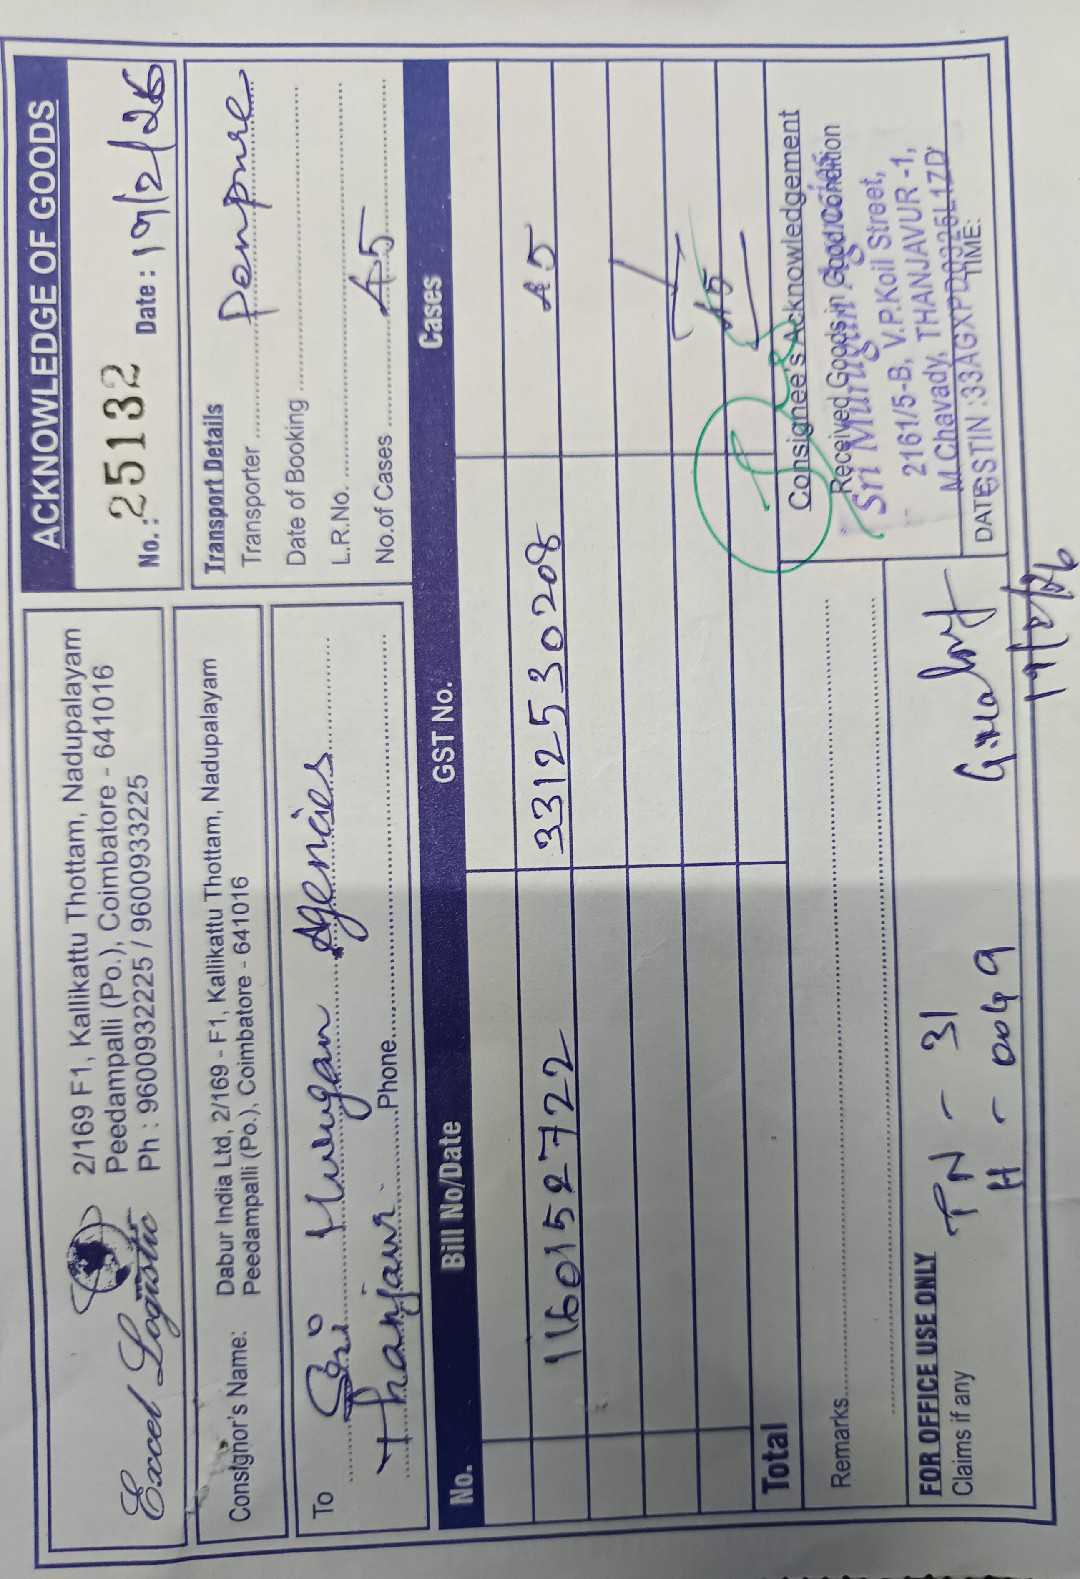 Excel Logistic
2/169 F1, Kallikattu Thottam, Nadupalayam
Peedampalli (Po.), Coimbatore - 641016
Ph : 9600932225 / 9600933225
ACKNOWLEDGE OF GOODS
No.: 25132 Date : 19/2/26
Consignor's Name: Dabur India Ltd, 2/169 - F1, Kallikattu Thottam, Nadupalayam
Peedampalli (Po.), Coimbatore - 641016
To Sri Murugan Agencies
Thanjavur Phone
Transport Details
Transporter Penpure
Date of Booking
L.R.No.
No.of Cases 45
No. Bill No/Date GST No. Cases
1160152722 3312530208 45
Total 45
Remarks
Consignee's Acknowledgement
Received Goods in Good Condition
Sri Murugan
2161/5-B, V.P.Koil Street,
M.Chavady, THANJAVUR -1,
GSTIN :33AGXPD0326L1ZD
DATE TIME:
FOR OFFICE USE ONLY
Claims if any
TN - 31
H - 0049
19/2/26